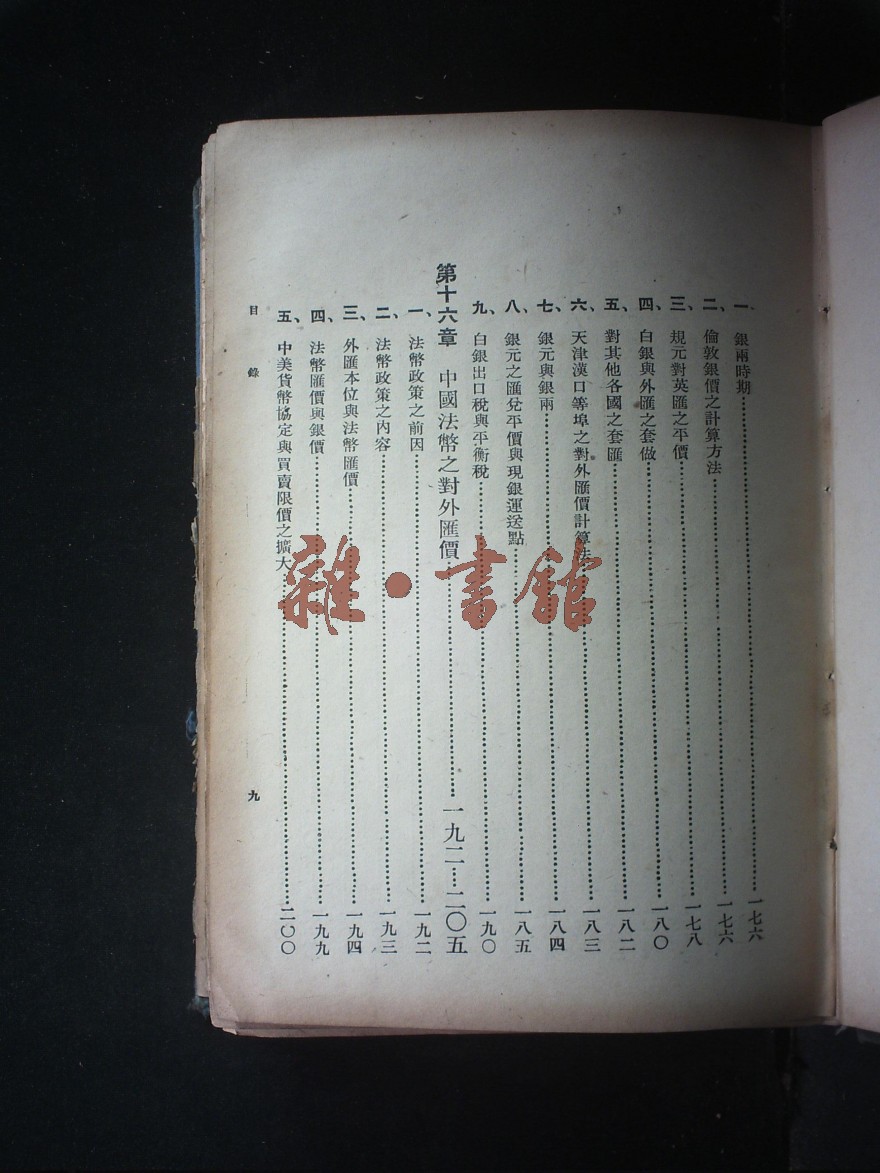 一、銀兩時期……一七六
二、倫敦銀價之計算方法……一七六
三、規元對英匯之平價……一七八
四、白銀與外匯之套做……一八〇
五、對其他各國之套匯……一八二
六、天津漢口等埠之對外匯價計算法……一八三
七、銀元與銀兩……一八四
八、銀元之匯兌平價與現銀運送點……一八五
九、白銀出口稅與平衡稅……一九〇
第十六章 中國法幣之對外匯價……一九二—二〇五
一、法幣政策之前因……一九二
二、法幣政策之內容……一九三
三、外匯本位與法幣匯價……一九四
四、法幣匯價與銀價……一九九
五、中美貨幣協定與買賣限價之擴大……二〇〇
目錄 九
雜·書館